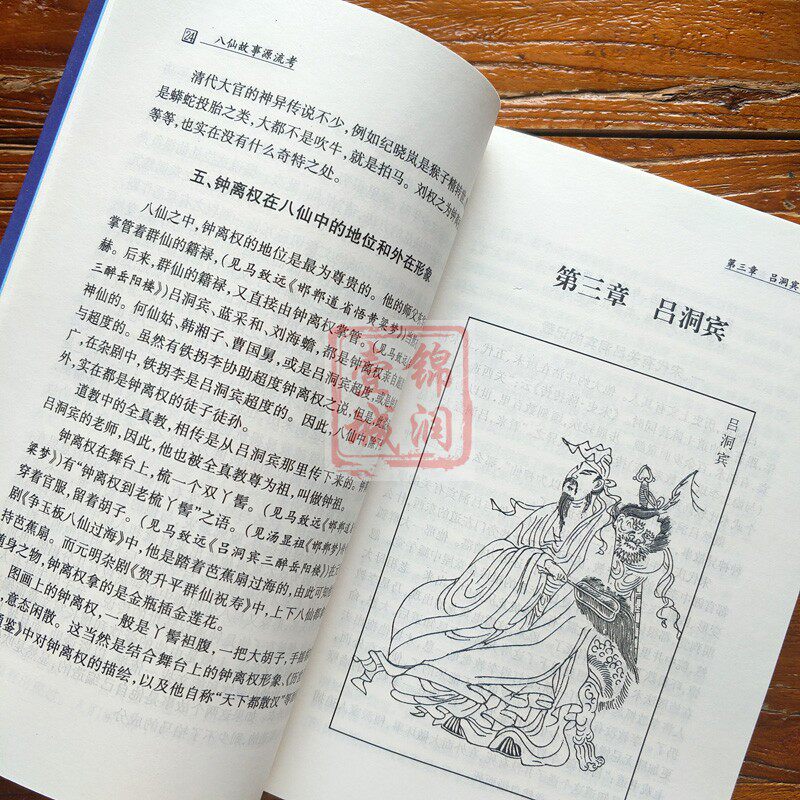 24 八仙故事源流考
清代大官的神异传说不少,例如纪晓岚是猴子精转
是蟒蛇投胎之类,大都不是吹牛,就是拍马。刘权之为钟
等等,也实在没有什么奇特之处。
五、钟离权在八仙中的地位和外在形象
八仙之中,钟离权的地位是最为尊贵的。他的师父
掌管着群仙的籍禄,(见马致远《邯郸道省悟黄粱梦》)
赫。后来,群仙的籍禄,又直接由钟离权掌管。(见马致远《吕洞宾
三醉岳阳楼》)吕洞宾、蓝采和、刘海蟾,都是钟离权亲自超
神仙的。何仙姑、韩湘子、曹国舅,或是吕洞宾超度的,或是
与超度的。虽然有铁拐李协助超度钟离权之说,但是,
广,在杂剧中,铁拐李是吕洞宾超度的。因此,八仙中除
外,实在都是钟离权的徒子徒孙。
道教中的全真教,相传是从吕洞宾那里传下来的。
吕洞宾的老师,因此,他也被全真教尊为祖,叫做钟祖。
钟离权在舞台上,梳一个双丫髻。(见马致远《邯郸道
梁梦》)有“钟离权到老梳丫髻”之语。(见汤显祖《邯郸梦》)
穿着官服,留着胡子。(见马致远《吕洞宾三醉岳阳楼》)
剧《争玉板八仙过海》中,他是踏着芭蕉扇过海的,由此可知
持芭蕉扇。而元明杂剧《贺升平群仙祝寿》中,上下八仙都
随身之物,钟离权拿的是金瓶插金莲花。
图画上的钟离权,一般是丫髻袒腹,一把大胡子,手
,意态闲散。这当然是结合舞台上的钟离权形象、《历
通鉴》中对钟离权的描绘,以及他自称“天下都散汉”等
第三章 吕洞宾
第三章 吕洞宾
吕洞宾
锦润
壹诚